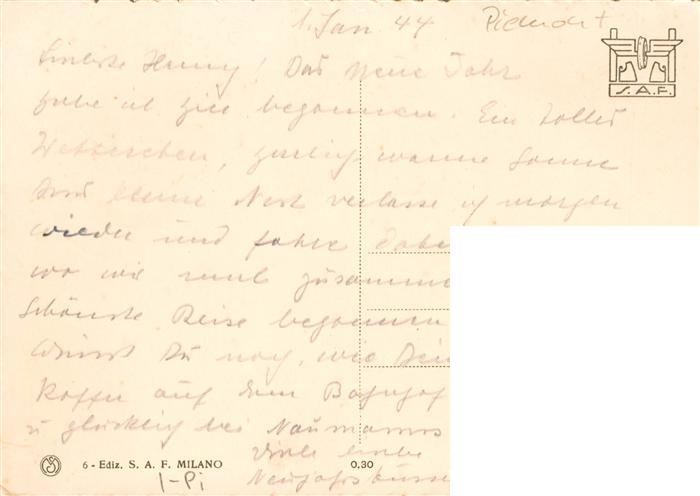 1. Jan 44 Piemont
S.A.F.
Liebste Hanny! Das Neue Jahr
habe ich hier begonnen. Ein tolles
Wetterchen, herrlich warme Sonne
Das kleine Nest verlasse ich morgen
wieder und fahre dabei
wo wir zusammen
schönste Reise begonnen
Weisst Du noch, wie Dein
Koffer auf dem Bahnhof
glücklich bei Naumanns
Viele liebe
Neujahrsküsse
6 - Ediz. S. A. F. MILANO 0,30
1-Pi